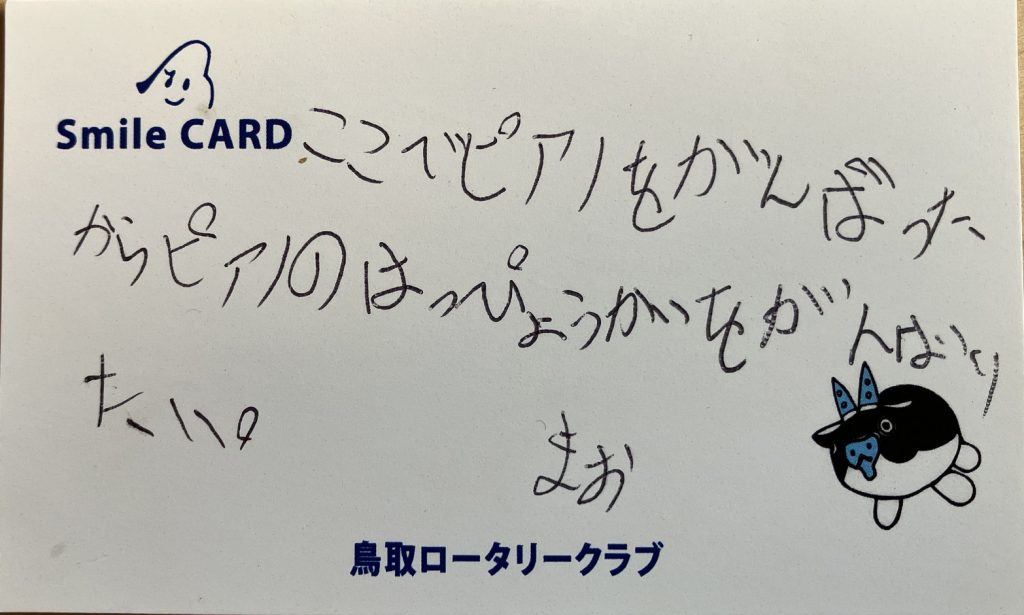 Smile CARD
ここでピアノをがんばった
からピアノのはっぴょうかいをがんばり
たい。
まお
鳥取ロータリークラブ